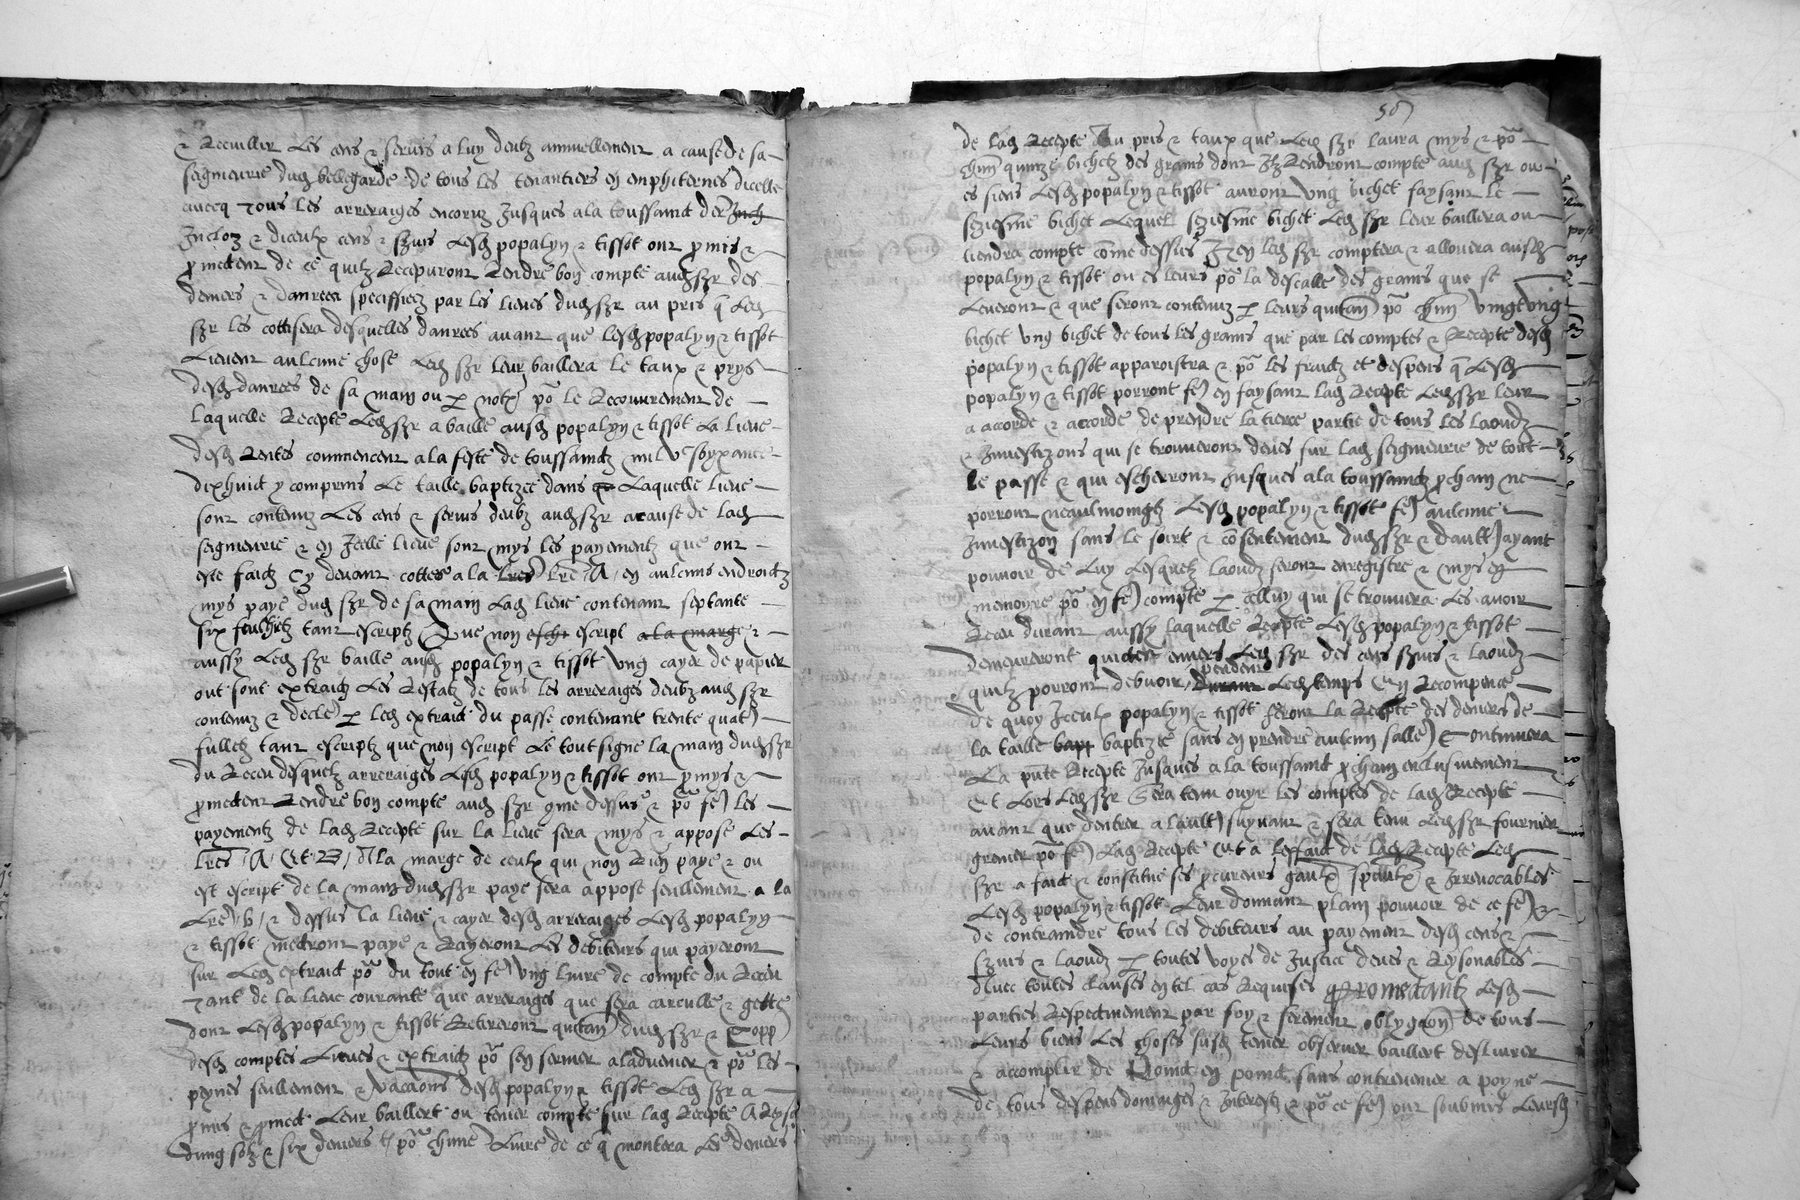 & Recuillir les cens & servis a luy deubz annuellement a cause de sa
seigneurie dud bellegarde de tous les tenantiers en emphiteoses dicelle
avecq tous les arreraiges encoruz Jusques a la toussainct der
Incloz & diceulx cens & servis lesd popalyn & tissot ont promis &
promectent de ce quilz Recepvront Rendre bon compte aud sr des
deniers & danrees speciffiez par les lieves dud sr au pris q led
sr les cottisera desquelles danrees avant que lesd popalyn & tissot
lievent aulcune chose led sr leur baillera le taux & prys
desd danrees de sa main ou p not po le Recouvrement de
laquelle Recepte led sr a baille ausd popalyn & tissot la lieve
desd Rentes commencent a la feste de toussainctz mil vc soyxante
dixhuict y comprins le taille baptizee dans laquelle lieve
sont contenuz les cens & servis deubz aud sr a cause de lad
seigneurie & en Icelle lieve sont mys les payementz que ont
este faictz Cy devant cottes a la lre A en aulcuns endroictz
mys paye dud sr de sa main lad lieve contenant septante
six feulhetz tant escriptz que non escript a la marge &
aussy led sr baille ausd popalyn & tissot ung cayer de papier
out sont extraictz les Restatz de tous les arreraiges deubz aud sr
contenuz & decle p led extraict du passe contenant trente quat
fulletz tant escriptz que non escript le tout signe la main dud sr
du Receu desquelz arreraiges lesd popalyn & tissot ont pmys &
promectent Rendre bon compte aud sr come dessus & po fe les
payementz de lad Recepte sur la lieve sera mys & appose les
lres A Et B A la marge de ceulx qui non Rien paye & ou
est escript de la main dud sr paye sera appose seullement a la
lre b & dessus la lieve & cayer desd arreraiges lesd popalyn
& tissot mectront paye & Rayeront les debiteurs qui payeront
sur led extraict po du tout en fe ung livre de compte du Receu
tant de la lieve courante que arreraiges que sera carculle & gette
dont lesd popalyn & tissot Retireront quitan dud sr & Copp
desd comptes lieves & extraictz po sen servir a ladvenir & po les
peynes seullement & vacaons desd popalyn & tissot led sr a
promis & promect leur bailler ou tenir compte sur lad Recepte A Reyson
dung solz & six deniers tz po chune livre de ce q montera les deniers
50
de lad Recepte Au pris & taux que led sr laura mys & po
chun quinze bichetz des grains dont Ilz Rendront compte aud sr ou
es siens lesd popalyn & tissot auront ung bichet faysant le
seziesme bichet lequel seziesme bichet led sr leur baillera ou
tiendra compte come dessus led sr comptera & allouera ausd
popalyn & tissot ou es leurs po la descalle des grains que se
leveront & que seront contenuz p leurs quitan po chun vingt ung
bichet ung bichet de tous les grains que par les comptes & Recepte desd
popalyn & tissot apparoistra & po les fraictz et despens q lesd
popalyn & tissot porront fe en faysant lad Recepte led sr leur
a acorde & acorde de prendre la tierce partie de tous les laoudz
& Investizons qui se trouveront deues sur lad seigneurie de tout
le passe & qui escherront Jusques a la toussainctz prochain ne
porront neaulmoingtz lesd popalyn & tissot fe aulcune
Investizon sans le soict & cosentement dud sr & dault ayant
pouvoir de luy lesquelz laoudz seront enregistre & mys en
memoyre po en fe compte p celluy qui se trouvera les avoir
Receu durant aussy laquelle Recepte lesd popalyn & tissot
demeureront quictes envers led sr des cens servis & laoudz
quilz porront debvoir pendent led temps Et en Recompence
de quoy Iceulx popalyn & tissot feront la Recepte des deniers de
la taille baptizee sans en prendre aulcun salle Continuera
La pnte Recepte Jusques a la toussainct prochain inclusivement
Et lors led sr Sera tenu ouyr les comptes de lad Recepte
avant que dentrer a lault suyvant & sera tenu led sr fournir
grenier po fe lad Recepte Et a leffaict de lad Recepte led
sr a faict & constitue ses procureurs gaulx speciaulx & Irrevocables
lesd popalyn & tissot leur donnant plain pouvoir de ce fe &
de contraindre tous les debiteurs au payement desd cens &
servis & laoudz p toutes voyes de Justice deues & Reysonables
Avec toutes clauses en tel cas Requises promectantz lesd
parties Respectivement par foy & serement oblygaon de tous
leurs biens les choses susd tenir observer bailler deslivrer
& accomplir de Poinct en poinct sans contrevenir a poyne
de tous despens domaiges & Interestz & po ce fe ont soubmis leursd